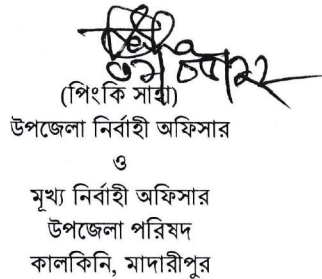 (পিংকি সাহা)
উপজেলা নির্বাহী অফিসার
ও
মূখ্য নির্বাহী অফিসার
উপজেলা পরিষদ
কালকিনি, মাদারীপুর